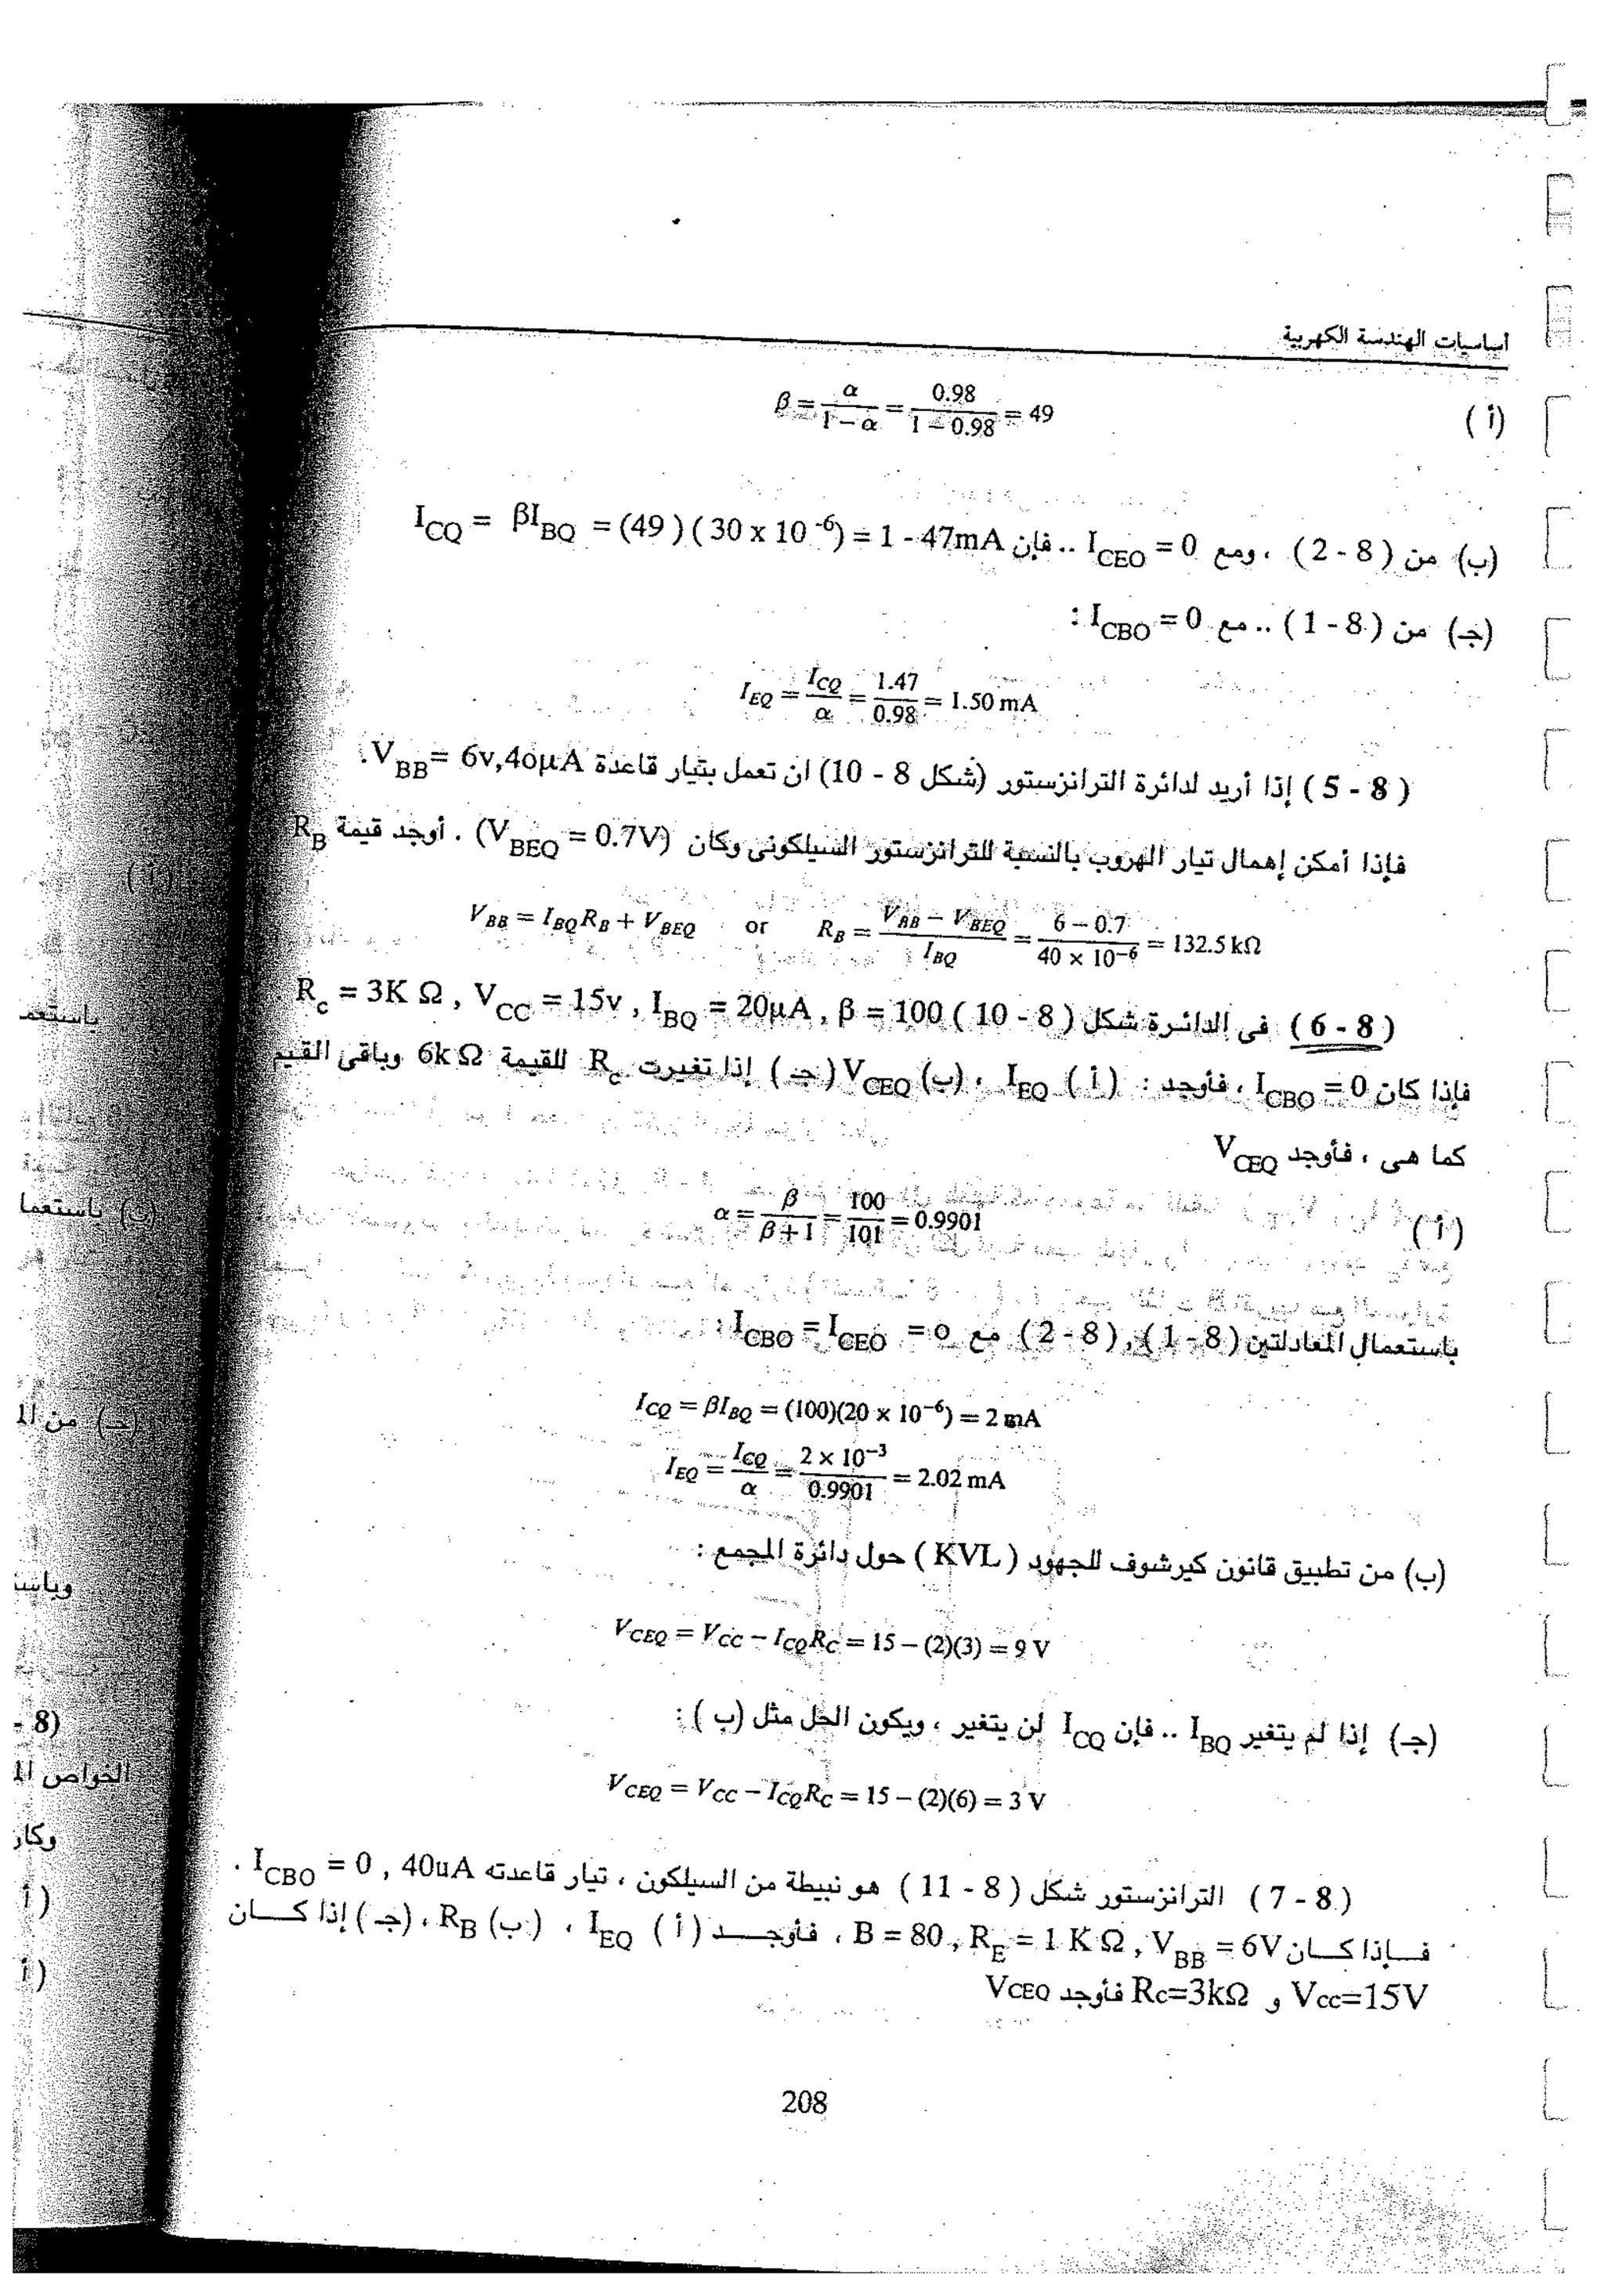 أساسيات الهندسة الكهربية
(أ) β = α / (1 − α) = 0.98 / (1 − 0.98) = 49
(ب) من (8 - 2) ، ومع I_CEO = 0 .. فإن I_CQ = βI_BQ = (49)(30 x 10^-6) = 1 - 47mA
(جـ) من (8 - 1) .. مع I_CBO = 0 :
I_EQ = I_CQ / α = 1.47 / 0.98 = 1.50 mA
(8 - 5) إذا أريد لدائرة الترانزستور (شكل 8 - 10) ان تعمل بتيار قاعدة V_BB = 6v,4oμA.
فإذا أمكن إهمال تيار الهروب بالنسبة للترانزستور السيلكونى وكان (V_BEQ = 0.7V) . أوجد قيمة R_B
V_BB = I_BQ R_B + V_BEQ or R_B = (V_BB − V_BEQ) / I_BQ = (6 − 0.7) / (40 × 10^−6) = 132.5 kΩ
(8 - 6) فى الدائرة شكل (8 - 10) R_c = 3K Ω , V_CC = 15v , I_BQ = 20μA , β = 100
فإذا كان I_CBO = 0 ، فأوجد : (أ) I_EQ ، (ب) V_CEQ (جـ) إذا تغيرت R_c للقيمة 6k Ω وباقى القيم
كما هى ، فأوجد V_CEQ
(أ) α = β / (β + 1) = 100 / 101 = 0.9901
باستعمال المعادلتين (8 - 1) , (8 - 2) مع I_CBO = I_CEO = o :
I_CQ = βI_BQ = (100)(20 × 10^−6) = 2 mA
I_EQ = I_CQ / α = 2 × 10^−3 / 0.9901 = 2.02 mA
(ب) من تطبيق قانون كيرشوف للجهود (KVL) حول دائرة المجمع :
V_CEQ = V_CC − I_CQ R_C = 15 − (2)(3) = 9 V
(جـ) إذا لم يتغير I_BQ .. فإن I_CQ لن يتغير ، ويكون الحل مثل (ب) :
V_CEQ = V_CC − I_CQ R_C = 15 − (2)(6) = 3 V
(8 - 7) الترانزستور شكل (8 - 11) هو نبيطة من السيلكون ، تيار قاعدته I_CBO = 0 , 40uA .
فإذا كان B = 80 , R_E = 1 K Ω , V_BB = 6V ، فأوجد (أ) I_EQ ، (ب) R_B ، (جـ) إذا كان
Vcc=15V و Rc=3kΩ فأوجد VCEQ
208
(أ)
باستعم
(ب) باستعما
(جـ) من ال
وباست
(8 -
الخواص ال
وكا
(أ
(أ